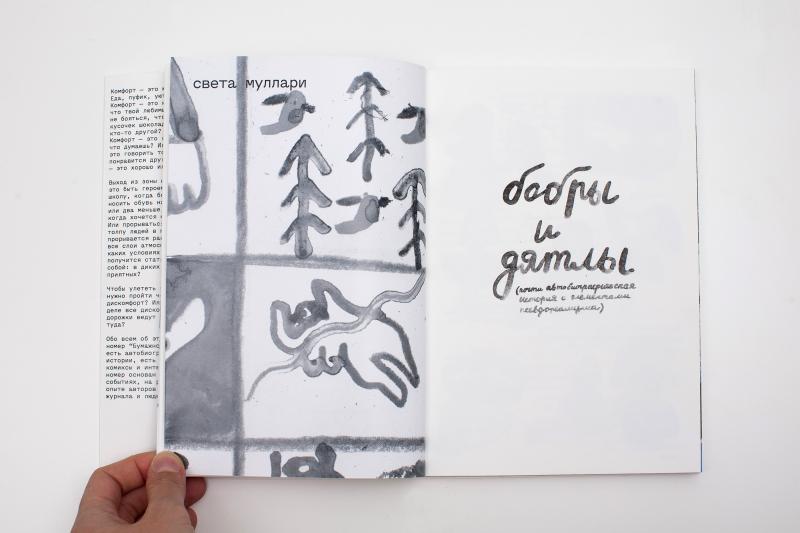 Комфорт — это
Еда, пуфик, 
Комфорт — это
что твой
не бояться, что
кусочек
кто-то другой?
Комфорт — это
что думаешь?
это говорить
понравится
— это хорошо
Выход из зоны
это быть
школу, когда
носить обувь на
или два меньше,
когда хочется
Или
толпу людей в
прорывается
все слои
каких условиях
получится
собой: в диких
приятных?
Чтобы улететь
нужно пройти
дискомфорт?
деле все
дорожки ведут
туда?
Обо всем об
номер "Бумажно
есть
истории, есть
комиксы и
номер основан
событиях, на
опыте авторов
журнала и
света муллари
бобры
и
дятлы
(почти автобиографическая
история с элементами
псевдореализма)